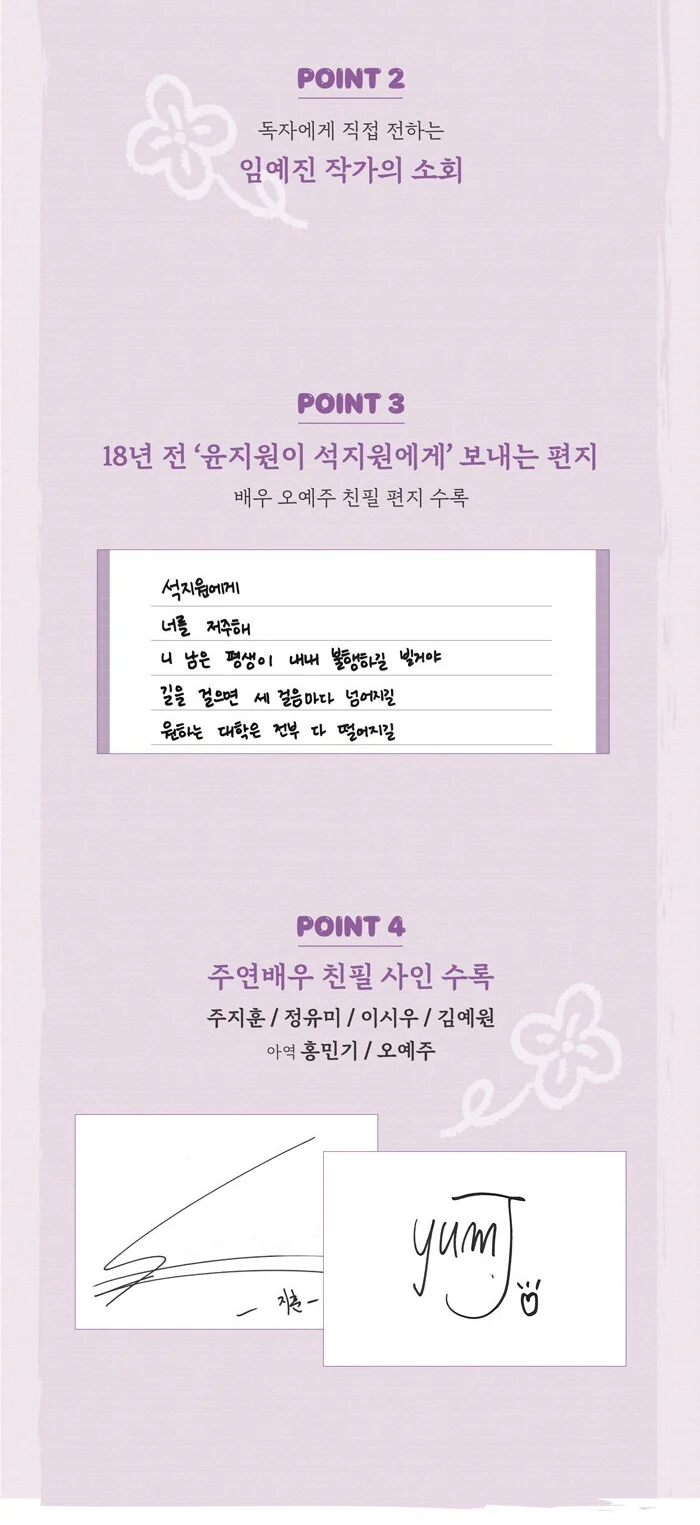 POINT 2
독자에게 직접 전하는
임예진 작가의 소회
POINT 3
18년 전 ‘윤지원이 석지원에게’ 보내는 편지
배우 오예주 친필 편지 수록
석지원에게
너를 저주해
니 남은 평생이 내내 불행하길 빌거야
길을 걸으면 세 걸음마다 넘어지길
원하는 대학은 전부 다 떨어지길
POINT 4
주연배우 친필 사인 수록
주지훈 / 정유미 / 이시우 / 김예원
아역 홍민기 / 오예주
지훈
yumJ